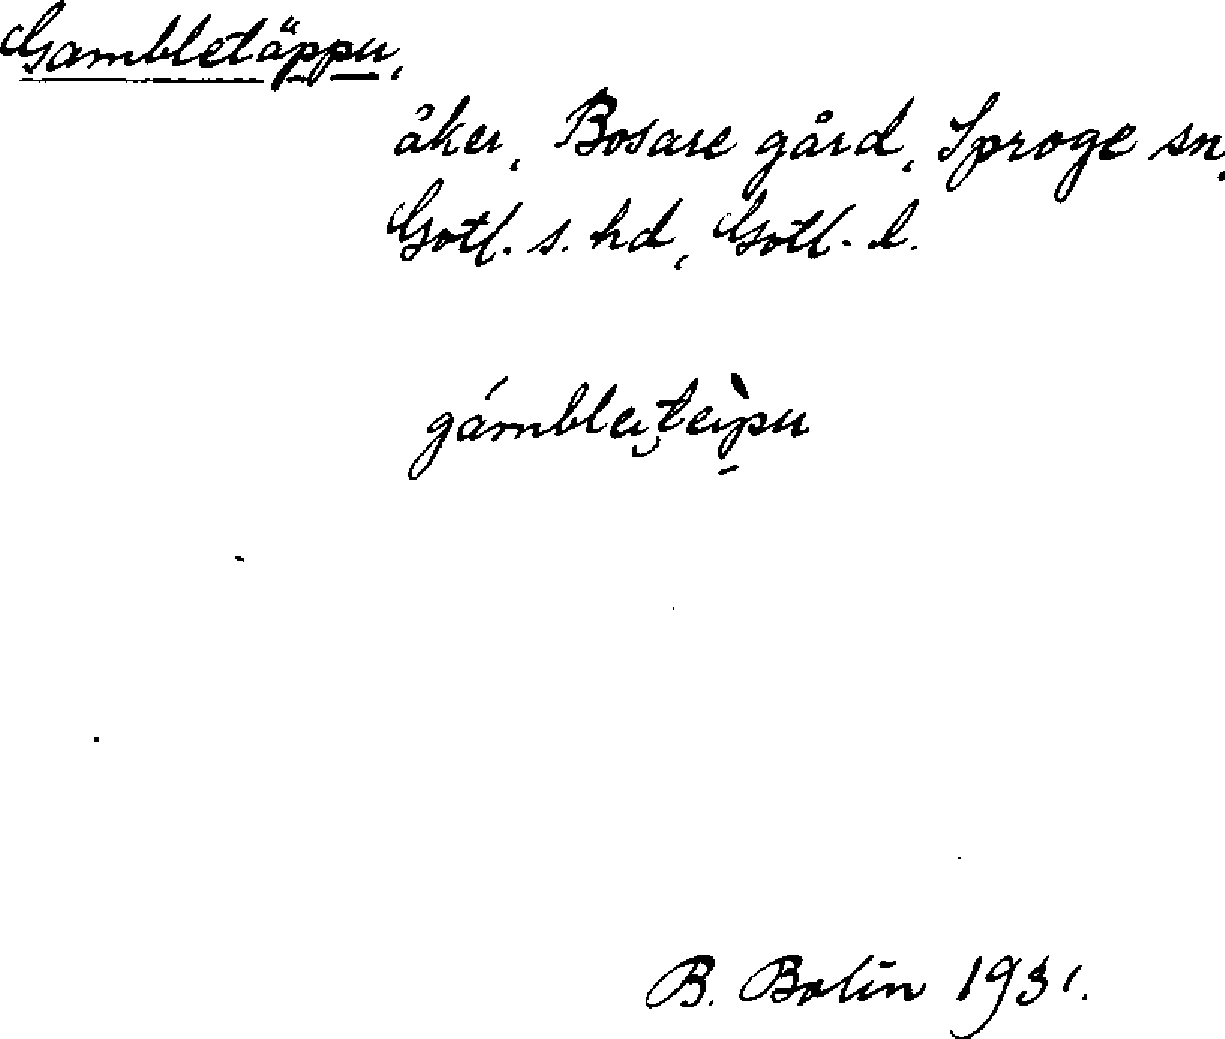 Gambletäppu,
åker, Bosare gård, Sproge sn,
Gotl. s. hd, Gotl. l.
B. Bolin 1931.